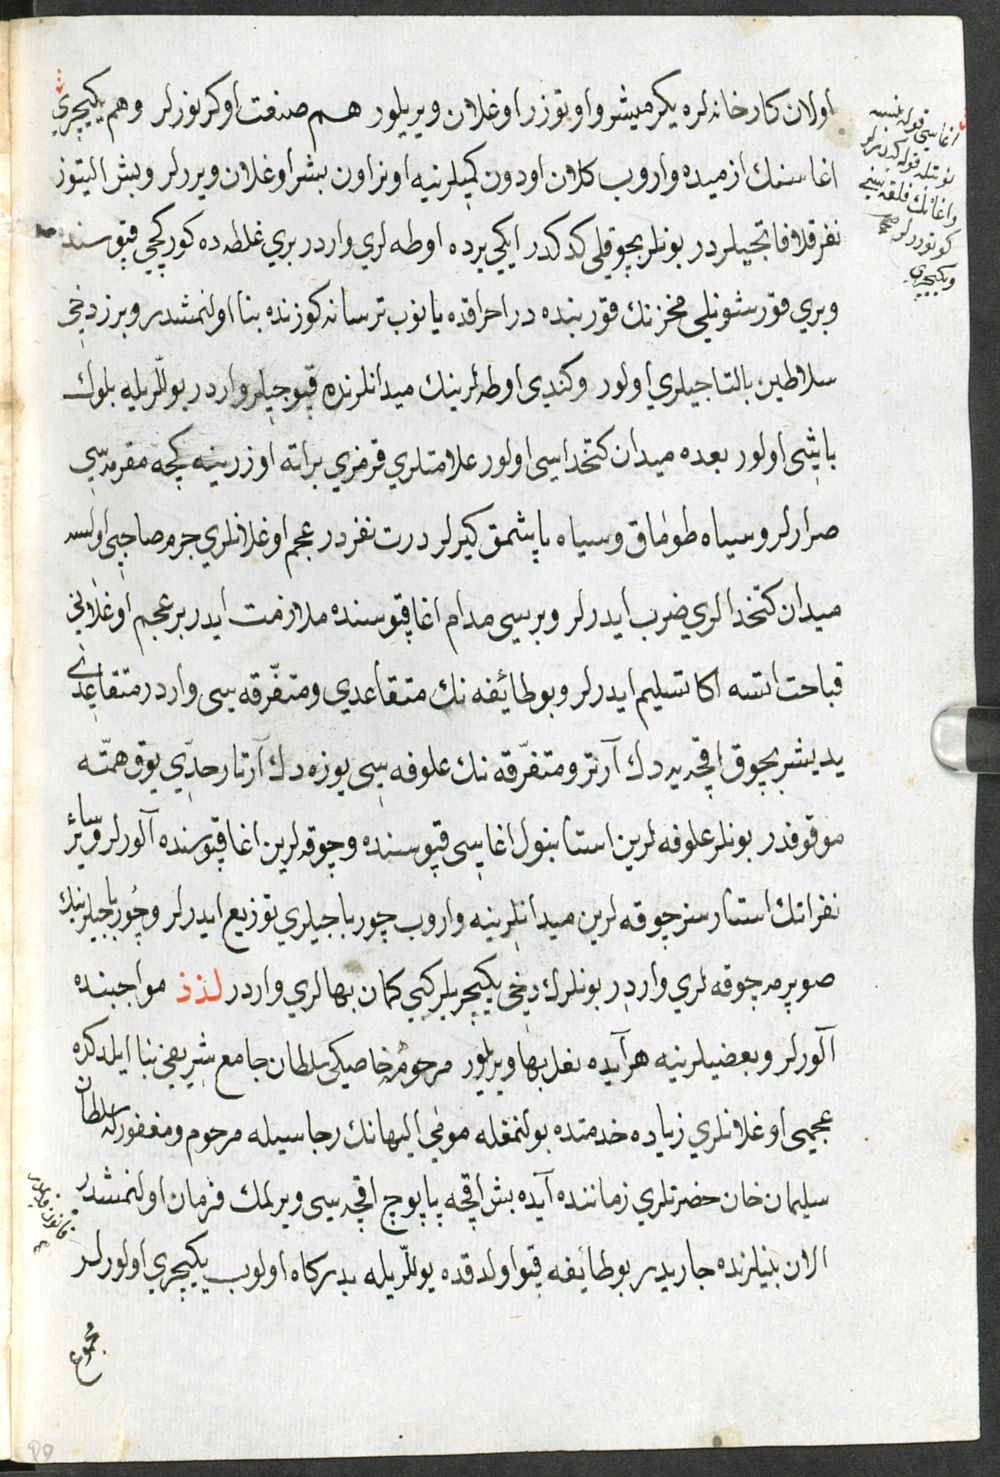 اولان كارخانه لره يكرميشر و اوتوزر اوغلان ويريلور هم صنعت اوكرنورلر وهم يكيچري
اغاسنك ازميده واروب كلان اودون كميلرينه اونر اون بشر اوغلان ويررلر وبش التيوز
نفر قلافاتجيلردر بونلر بچوقلى كدكدر ايكى يرده اوطه لري واردر بري غلطه ده كوركچى قپوسنده
وبري قورشونلى مخزنك قوربنده در احراقده يانوب ترسانه كوزنده بنا اولنمشدر وبرز دخى
سلاطين بالتاجيلري اولور وكندى اوطه لرينك ميدانلرنده قپوجيلر واردر يوللريله بلوك
باشى اولور بعده ميدان كتخداسى اولور علامتلري قرمزي براته اوزرينه كچه مقرمه سى
صرارلر وسياه طوماق وسياه پاپشمق كيرلر درت نفردر عجم اوغلانلري جرم صاحبى اولسه
ميدان كتخدالري ضرب ايدرلر وبريسى مدام اغا قپوسنده ملازمت ايدر بر عجم اوغلانى
قباحت اتسه اكا تسليم ايدرلر وبو طائفه نك متقاعدي ومتفرقه سى واردر متقاعدى
يديشر بچوق اقچه يه دك آرتر ومتفرقه نك علوفه سى يوزه دك آرتار حدّي يوق همّته
موقوفدر بونلر علوفه لرين استانبول اغاسى قپوسنده وچوقه لرين اغا قپوسنده آلورلر وسائر
نفراتك استار سز چوقه لرين ميدانلرينه واروب چورباجيلري توزيع ايدرلر وچورباجيلرينك
صوپرمه چوقه لري واردر بونلرك دخى يكيچريلر كبى كمان بهالري واردر لذذ مواجبنده
آلورلر وبعضيلرينه هر آيده نعل بها ويريلور مرحومه خاصكى سلطان جامع شريفنى بنا ايلدكده
عجمى اوغلانلري زياده خدمتده بولنمغله مومى اليهانك رجاسيله مرحوم ومغفور له سلطان
سليمان خان حضرتلري زماننده آيده بش اقچه پاپوچ اقچه سى ويرلمك فرمان اولنمشدر
الان بينلرنده جاريدر بو طائفه قپو اولدقده يوللريله بدركاه اولوب يكيچري اولورلر
مجموع
اغاسى قوله بنسه
واغانك فلقه سنى
كوتوررلر صح
ويكيچري